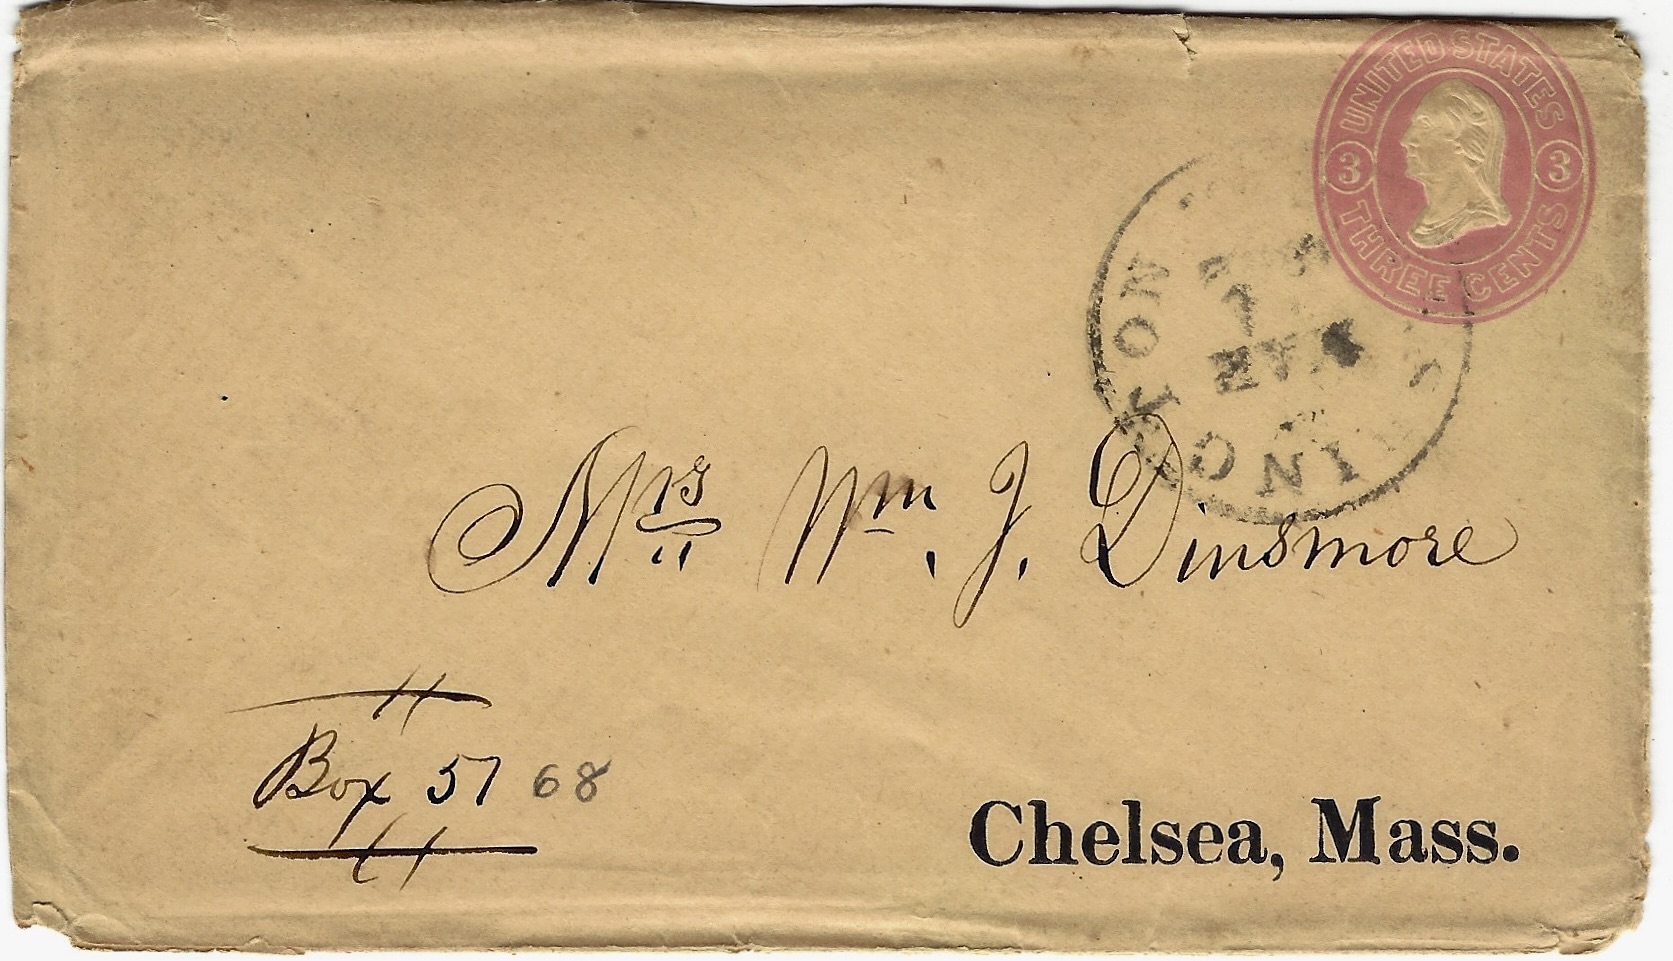 UNITED STATES
3 3
THREE CENTS
MAR
Mrs Wm. J. Dinsmore
Box 57 68
Chelsea, Mass.